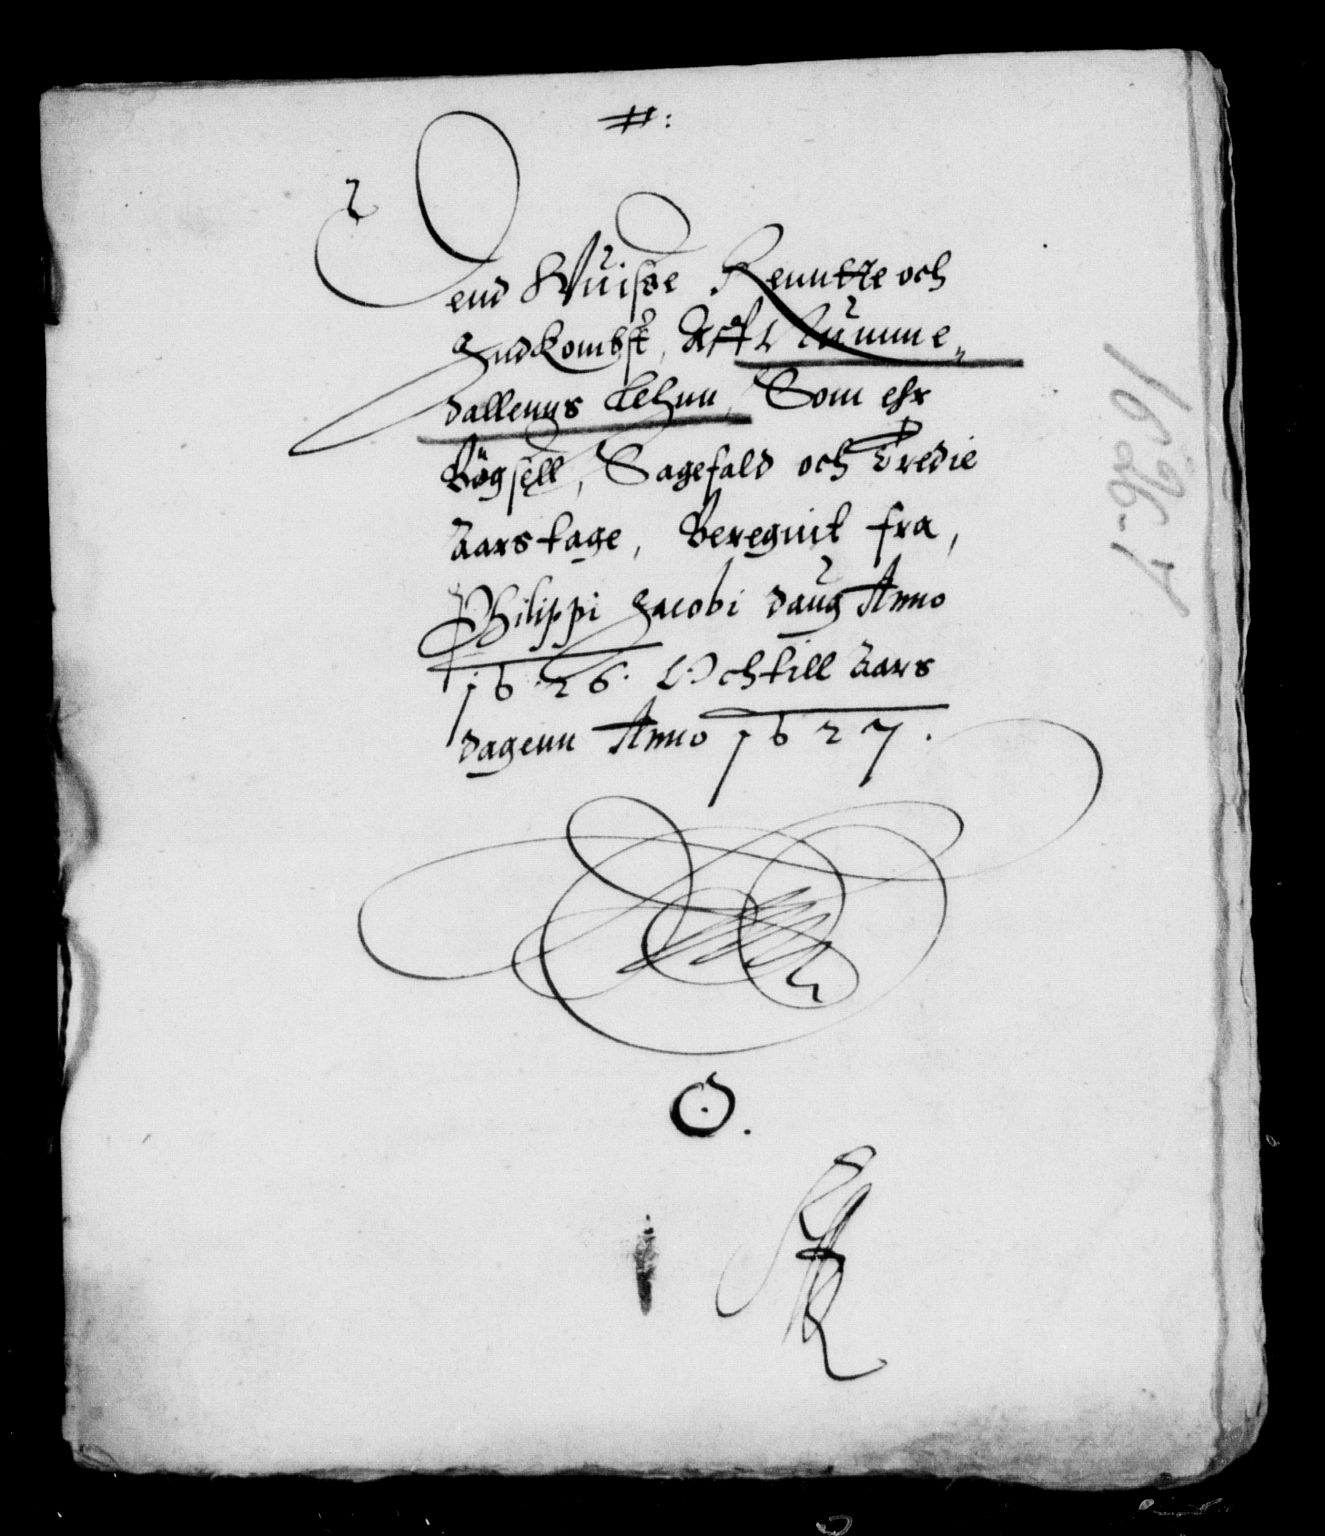 #:
Uend Wuisse Renntte och
Indkombst, Aff Numme„
dallenns Lehnn, Som ehr
Bøgsell, Sagefald och Tredie
Aars tage, Beregnit fra,
Philippi Jacobi daug Anno
1626. Och till Aars
dagenn Anno 1627.
O.
1626-7